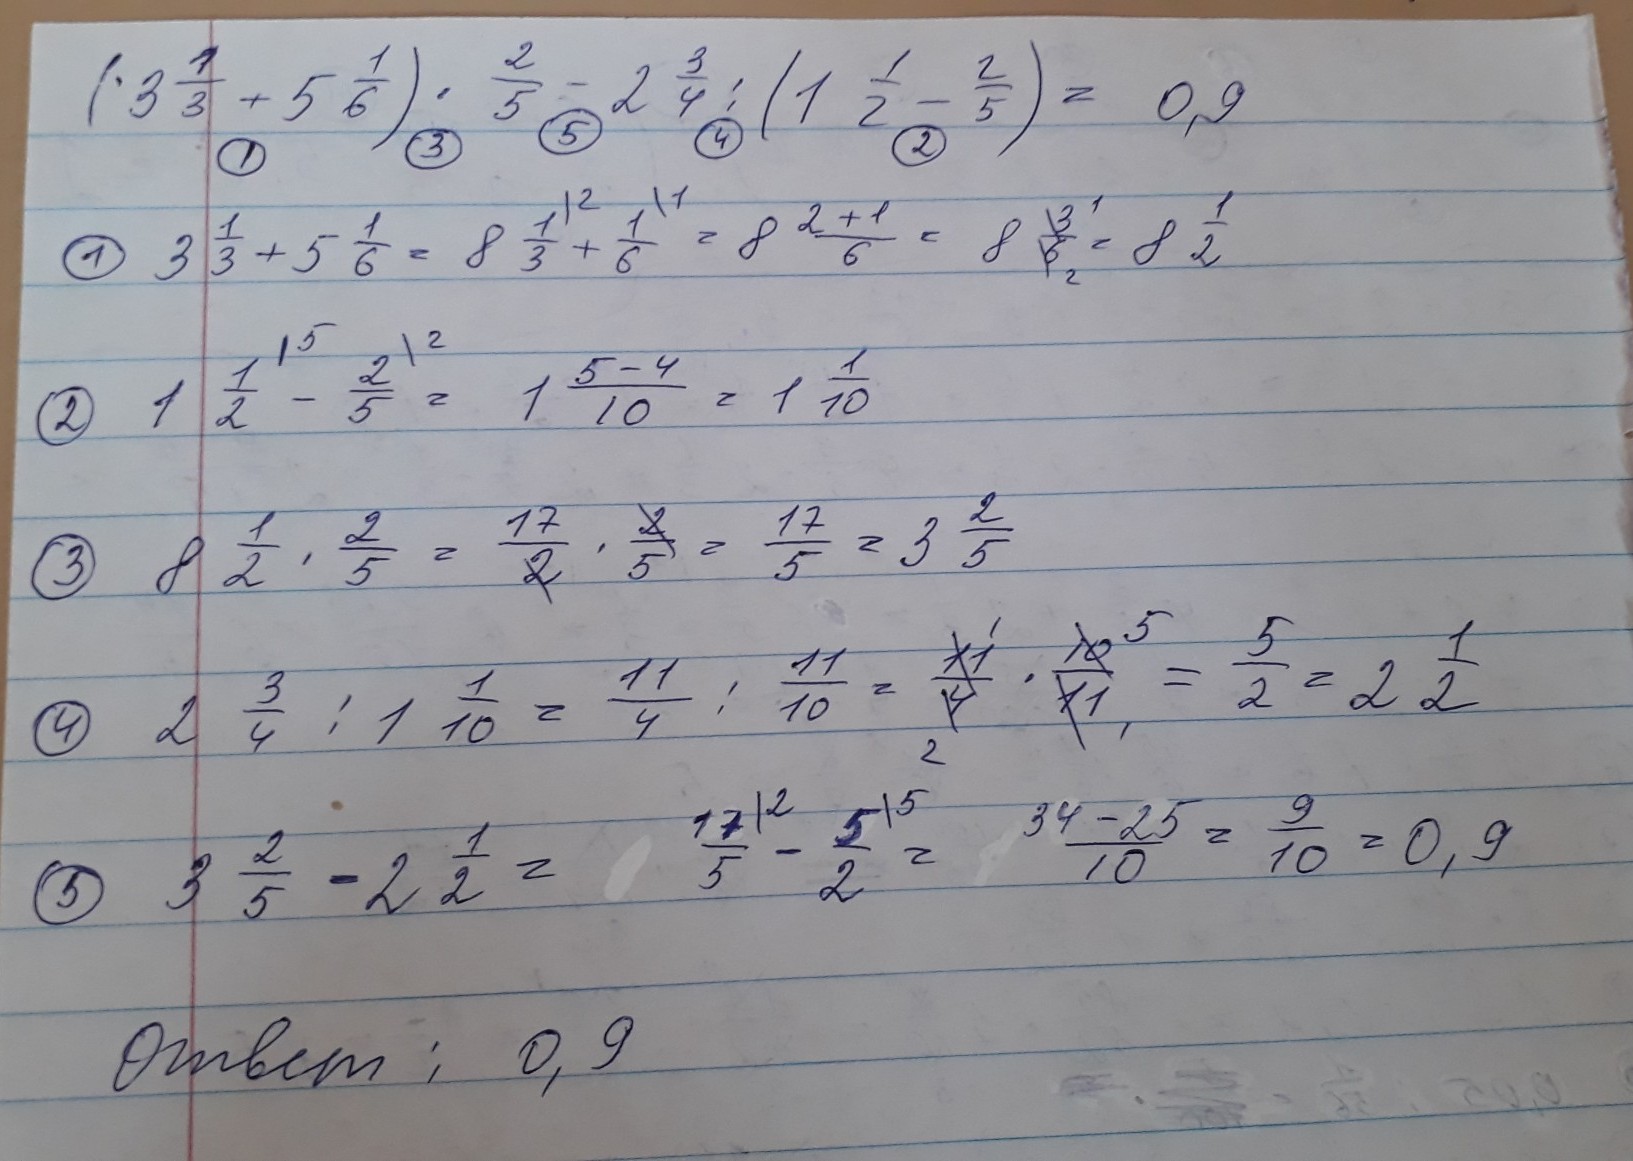 (3 1/3 + 5 1/6) · 2/5 - 2 3/4 : (1 1/2 - 2/5) = 0,9
① ③ ⑤ ④ ②
① 3 1/3 + 5 1/6 = 8 1/3\2 + 1/6\1 = 8 2+1/6 = 8 3/6 1 2 = 8 1/2
② 1 1/2\5 - 2/5\2 = 1 5-4/10 = 1 1/10
③ 8 1/2 · 2/5 = 17/2 · 2/5 = 17/5 = 3 2/5
④ 2 3/4 : 1 1/10 = 11/4 : 11/10 = 11/4 1 2 · 10/11 5 1 = 5/2 = 2 1/2
⑤ 3 2/5 - 2 1/2 = 17/5\2 - 5/2\5 = 34-25/10 = 9/10 = 0,9
Ответ: 0,9